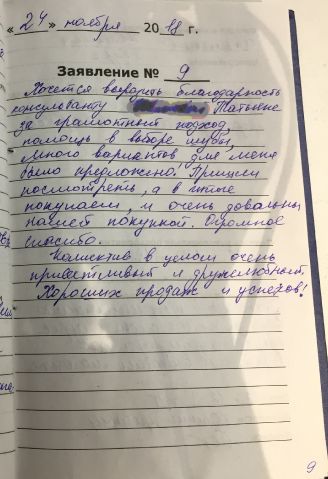 « 24 » ноября 2018 г.
Заявление № 9
Хочется выразить благодарность
консультанту Татьяне
за грамотный подход,
помощь в выборе шубы,
много вариантов для меня
было предложено. Пришли
посмотреть, а в итоге
покупаем, и очень довольны
нашей покупкой. Огромное
спасибо.
Коллектив в целом очень
приветливый и дружелюбный.
Хороших продаж и успехов!
9